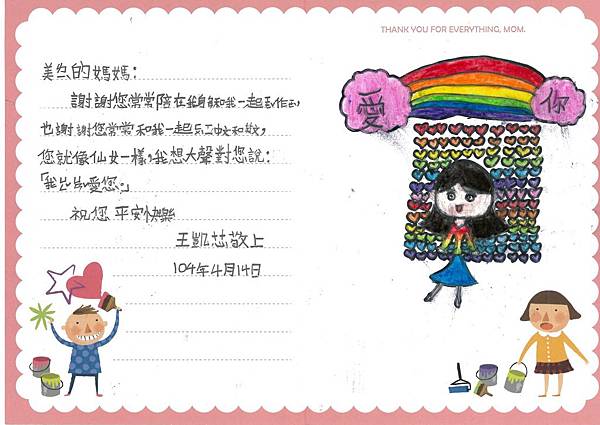 THANK YOU FOR EVERYTHING, MOM.
愛
你
美的媽媽：
謝謝您常常陪在我身和我一起
也謝謝您常常和我一起
您就像仙女一樣，我想大聲對您說：
「我愛您。」
祝您 平安快樂
王凱芯敬上
104年4月14日